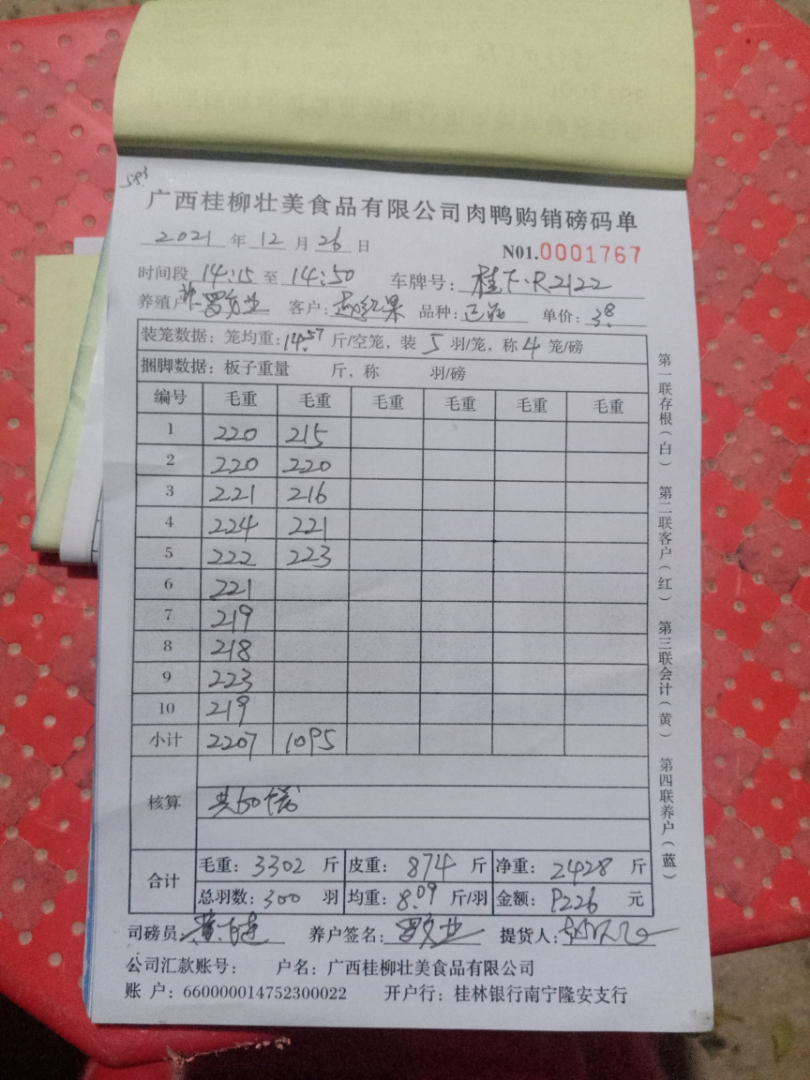 593
广西桂柳壮美食品有限公司肉鸭购销磅码单
2021 年 12 月 26 日 N01.0001767
时间段 14:15 至 14:50 车牌号: 桂F·R2122
养殖户 客户: 赵红果 品种: 单价: 3.8
装笼数据: 笼均重: 14.57 斤/空笼, 装 5 羽/笼, 称 4 笼/磅
捆脚数据: 板子重量 斤, 称 羽/磅
编号 毛重 毛重 毛重 毛重 毛重 毛重
1 220 215
2 220 220
3 221 216
4 224 221
5 222 223
6 221
7 219
8 218
9 223
10 219
小计 2207 1095
核算 共60笼
合计 毛重: 3302 斤 皮重: 874 斤 净重: 2428 斤
总羽数: 300 羽 均重: 8.09 斤/羽 金额: 9226 元
司磅员: 养户签名: 提货人:
公司汇款账号: 户名: 广西桂柳壮美食品有限公司
账 户: 660000014752300022 开户行: 桂林银行南宁隆安支行
第一联存根(白) 第二联客户(红) 第三联会计(黄) 第四联养户(蓝)